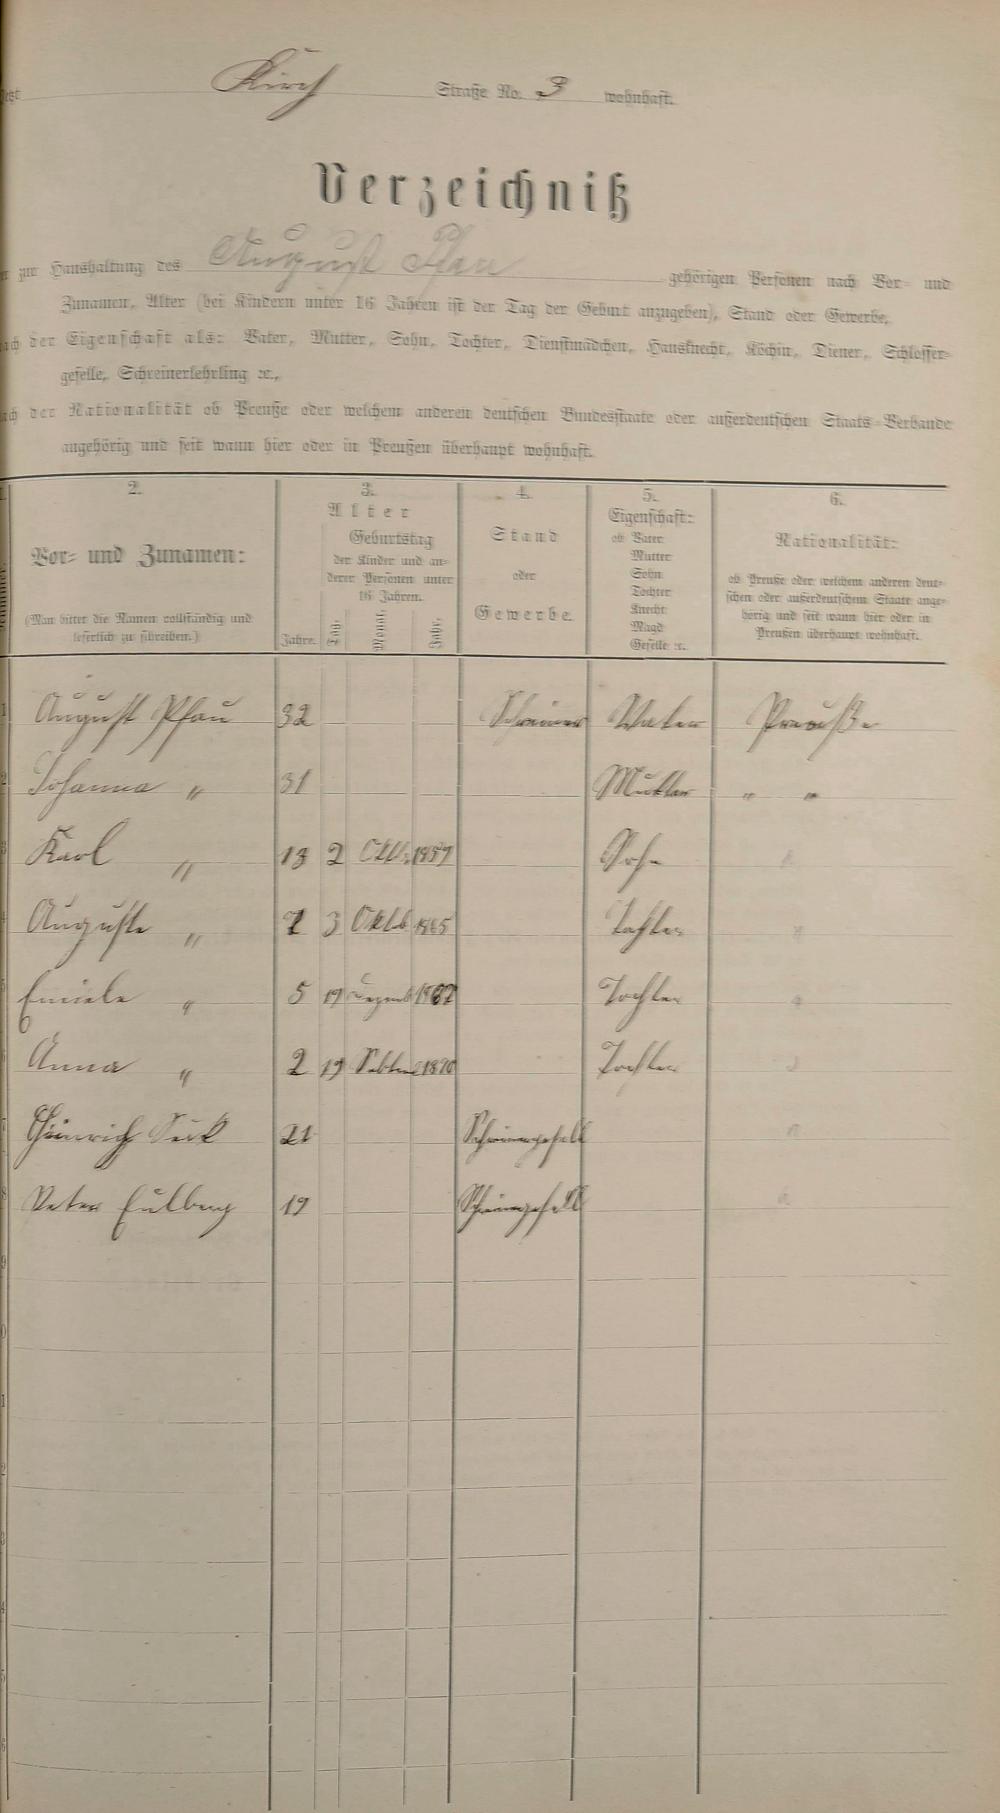 Kirch Straße No. 3 wohnhaft.
Verzeichniß
zur Haushaltung des August Pfau gehörigen Personen nach Vor- und
Zunamen, Alter (bei Kindern unter 16 Jahren ist der Tag der Geburt anzugeben), Stand oder Gewerbe,
nach der Eigenschaft als: Vater, Mutter, Sohn, Tochter, Dienstmädchen, Hausknecht, Köchin, Diener, Schlosser-
geselle, Schreinerlehrling ꝛc.,
nach der Nationalität ob Preuße oder welchem anderen deutschen Bundesstaate oder außerdeutschen Staats-Verbande
angehörig und seit wann hier oder in Preußen überhaupt wohnhaft.
2. 3. 4. 5. 6.
Vor- und Zunamen:
(Man bittet die Namen vollständig und
leserlich zu schreiben.)
Alter
Jahre.
Geburtstag
der Kinder und an-
derer Personen unter
16 Jahren.
Tag. Monat. Jahr.
Stand
oder
Gewerbe.
Eigenschaft:
ob Vater
Mutter
Sohn
Tochter
Knecht
Magd
Geselle ꝛc.
Nationalität:
ob Preuße oder welchem anderen deut-
schen oder außerdeutschem Staate ange-
hörig und seit wann hier oder in
Preußen überhaupt wohnhaft.
1 August Pfau 32 Schreiner Vater Preuße
2 Johanna " 31 Mutter " "
3 Karl " 13 2 Okt. 1859 Sohn "
4 Auguste " 7 3 Oktob 1865 Tochter "
5 Emiele " 5 19 Dezemb 1867 Tochter "
6 Anna " 2 19 Sebtem 1870 Tochter "
7 Heinrich Seck 21 Schreinergesell "
8 Peter Eulberg 19 Schreinergesell "
9
0
1
2
3
4
5
6